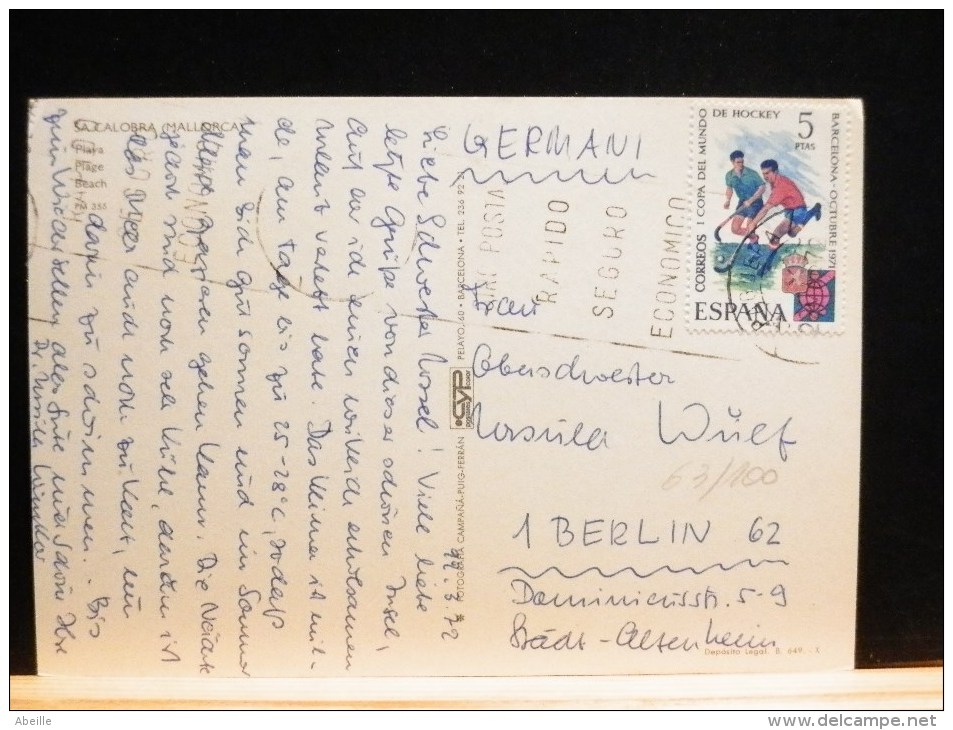 SA CALOBRA (MALLORCA)
Playa
Plage
Beach
PM 356
29.3.72
Liebe Schwester Ursel! Viele liebe
letzte Grüße von dieser schönen Insel,
auf der ich einen wirklich erholsamen
Urlaub verlebt habe. Das Klima ist mil-
de, am Tage bis zu 25-28°C, sodaß
man sich gut sonnen und im Sommer
gehen kann. Die Nächte
jedoch sind noch sehr kühl, darin ist
das Meer auch noch zu kalt, um
darin zu schwimmen. - Bis
zum Wiedersehen alles Gute und Schöne Ihre
Dr. Ursula
FOTOGRAFIA CAMPAÑÁ-PUIG-FERRÁN
CYP
PELAYO, 60 • BARCELONA • TEL. 236 92
GERMANI
Frau
Oberschwester
Ursula Wulf
63/100
1 BERLIN 62
Dominicusstr. 5-9
Städt-Altenheim
Depósito Legal B. 649.-X
POSTA
RAPIDO
SEGURO
ECONOMICO
CORREOS I COPA DEL MUNDO DE HOCKEY
5
PTAS
BARCELONA-OCTUBRE 1971
ESPAÑA
Abeille
www.delcampe.net